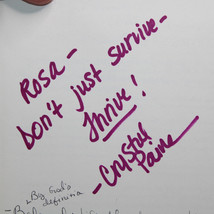 Rosa -
Don't just survive -
thrive!
- Crystal
Paine
- Big Goals